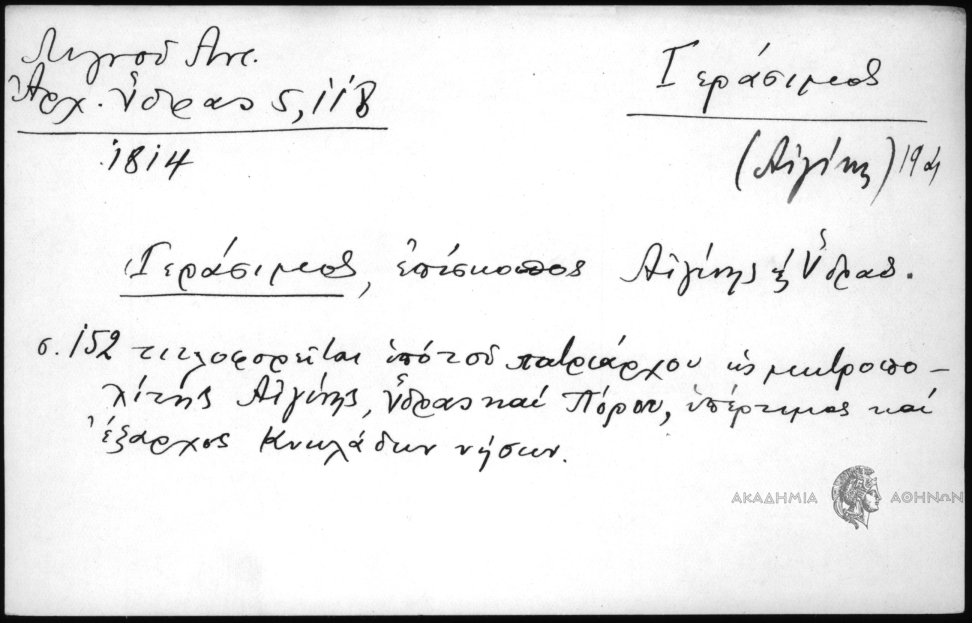 Λιγνοῦ Αντ.
Ἀρχ. Ὕδρας 5, 118
1814
Γεράσιμος
(Αἰγίνης)
Γεράσιμος, ἐπίσκοπος Αἰγίνης κ Ὕδρας.
σ. 152 τιτλοφορεῖται ὑπὸ τοῦ πατριάρχου ὡς μητροπο-
λίτης Αἰγίνης, Ὕδρας καί Πόρου, ὑπέρτιμος καί
ἔξαρχος Κυκλάδων νήσων.
ΑΚΑΔΗΜΙΑ ΑΘΗΝΩΝ